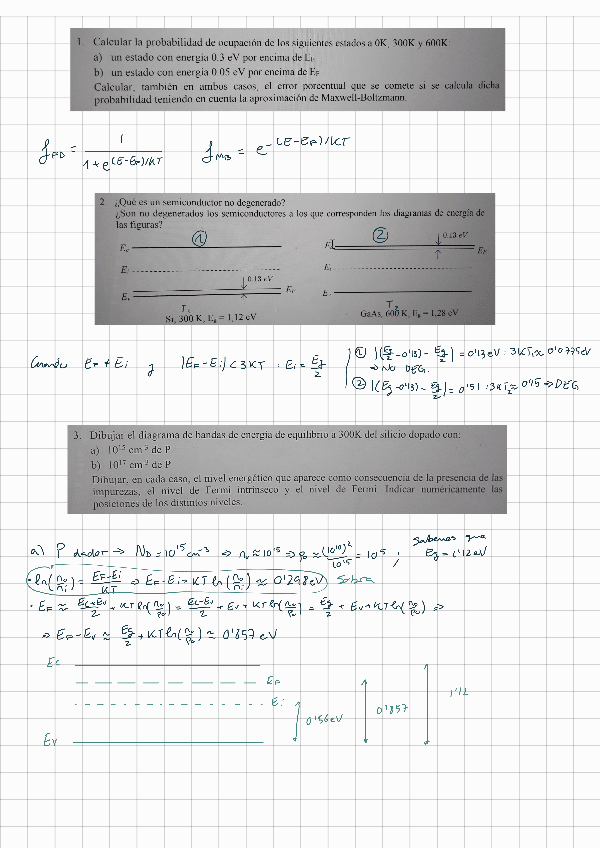 1. Calcular la probabilidad de ocupación de los siguientes estados a 0K, 300K y 600K:
a) un estado con energía 0.3 eV por encima de EF
b) un estado con energía 0.05 eV por encima de EF
Calcular, también en ambos casos, el error porcentual que se comete si se calcula dicha
probabilidad teniendo en cuenta la aproximación de Maxwell-Boltzmann.
fFD = 1 / 1+e(E-EF)/KT fMB = e-(E-EF)/KT
2. ¿Qué es un semiconductor no degenerado?
¿Son no degenerados los semiconductores a los que corresponden los diagramas de energía de
las figuras?
① ②
Ec
Ei
0.13 eV
EF
Ev
T1
Si, 300 K, Eg = 1,12 eV
0.13 eV
EF
Ei
T2
GaAs, 600 K, Eg = 1,28 eV
Cuando EF ≠ Ei y |EF-Ei| < 3KT : Ei = Eg/2
① |(Eg/2 - 0'13) - Eg/2| = 0'13 eV : 3KT1 ≈ 0'0775eV
⇒ NO DEG.
② |(Eg - 0'13) - Eg/2| = 0'51 : 3KT2 ≈ 0'15 ⇒ DEG
3. Dibujar el diagrama de bandas de energía de equilibrio a 300K del silicio dopado con:
a) 10^15 cm-3 de P
b) 10^17 cm-3 de P
Dibujar, en cada caso, el nivel energético que aparece como consecuencia de la presencia de las
impurezas, el nivel de Fermi intrínseco y el nivel de Fermi. Indicar numéricamente las
posiciones de los distintos niveles.
a) P dador → ND = 10^15 cm-3 ⇒ n0 ≈ 10^15 ⇒ p0 ≈ (10^10)^2 / 10^15 = 10^5 ; Sabemos que
Eg = 1'12 eV
· ln(n0/ni) = EF-Ei / KT ⇒ EF-Ei = KT ln(n0/ni) ≈ 0'298eV Sobra
· EF ≈ Ec+Ev/2 + KT ln(n0/p0) = Ec-Ev/2 + Ev + KT ln(n0/p0) = Eg/2 + Ev + KT ln(n0/p0) ⇒
⇒ EF - Ev ≈ Eg/2 + KT ln(n0/p0) ≈ 0'857 eV
Ec
EF
Ei
Ev
0'56eV
0'857
1'12